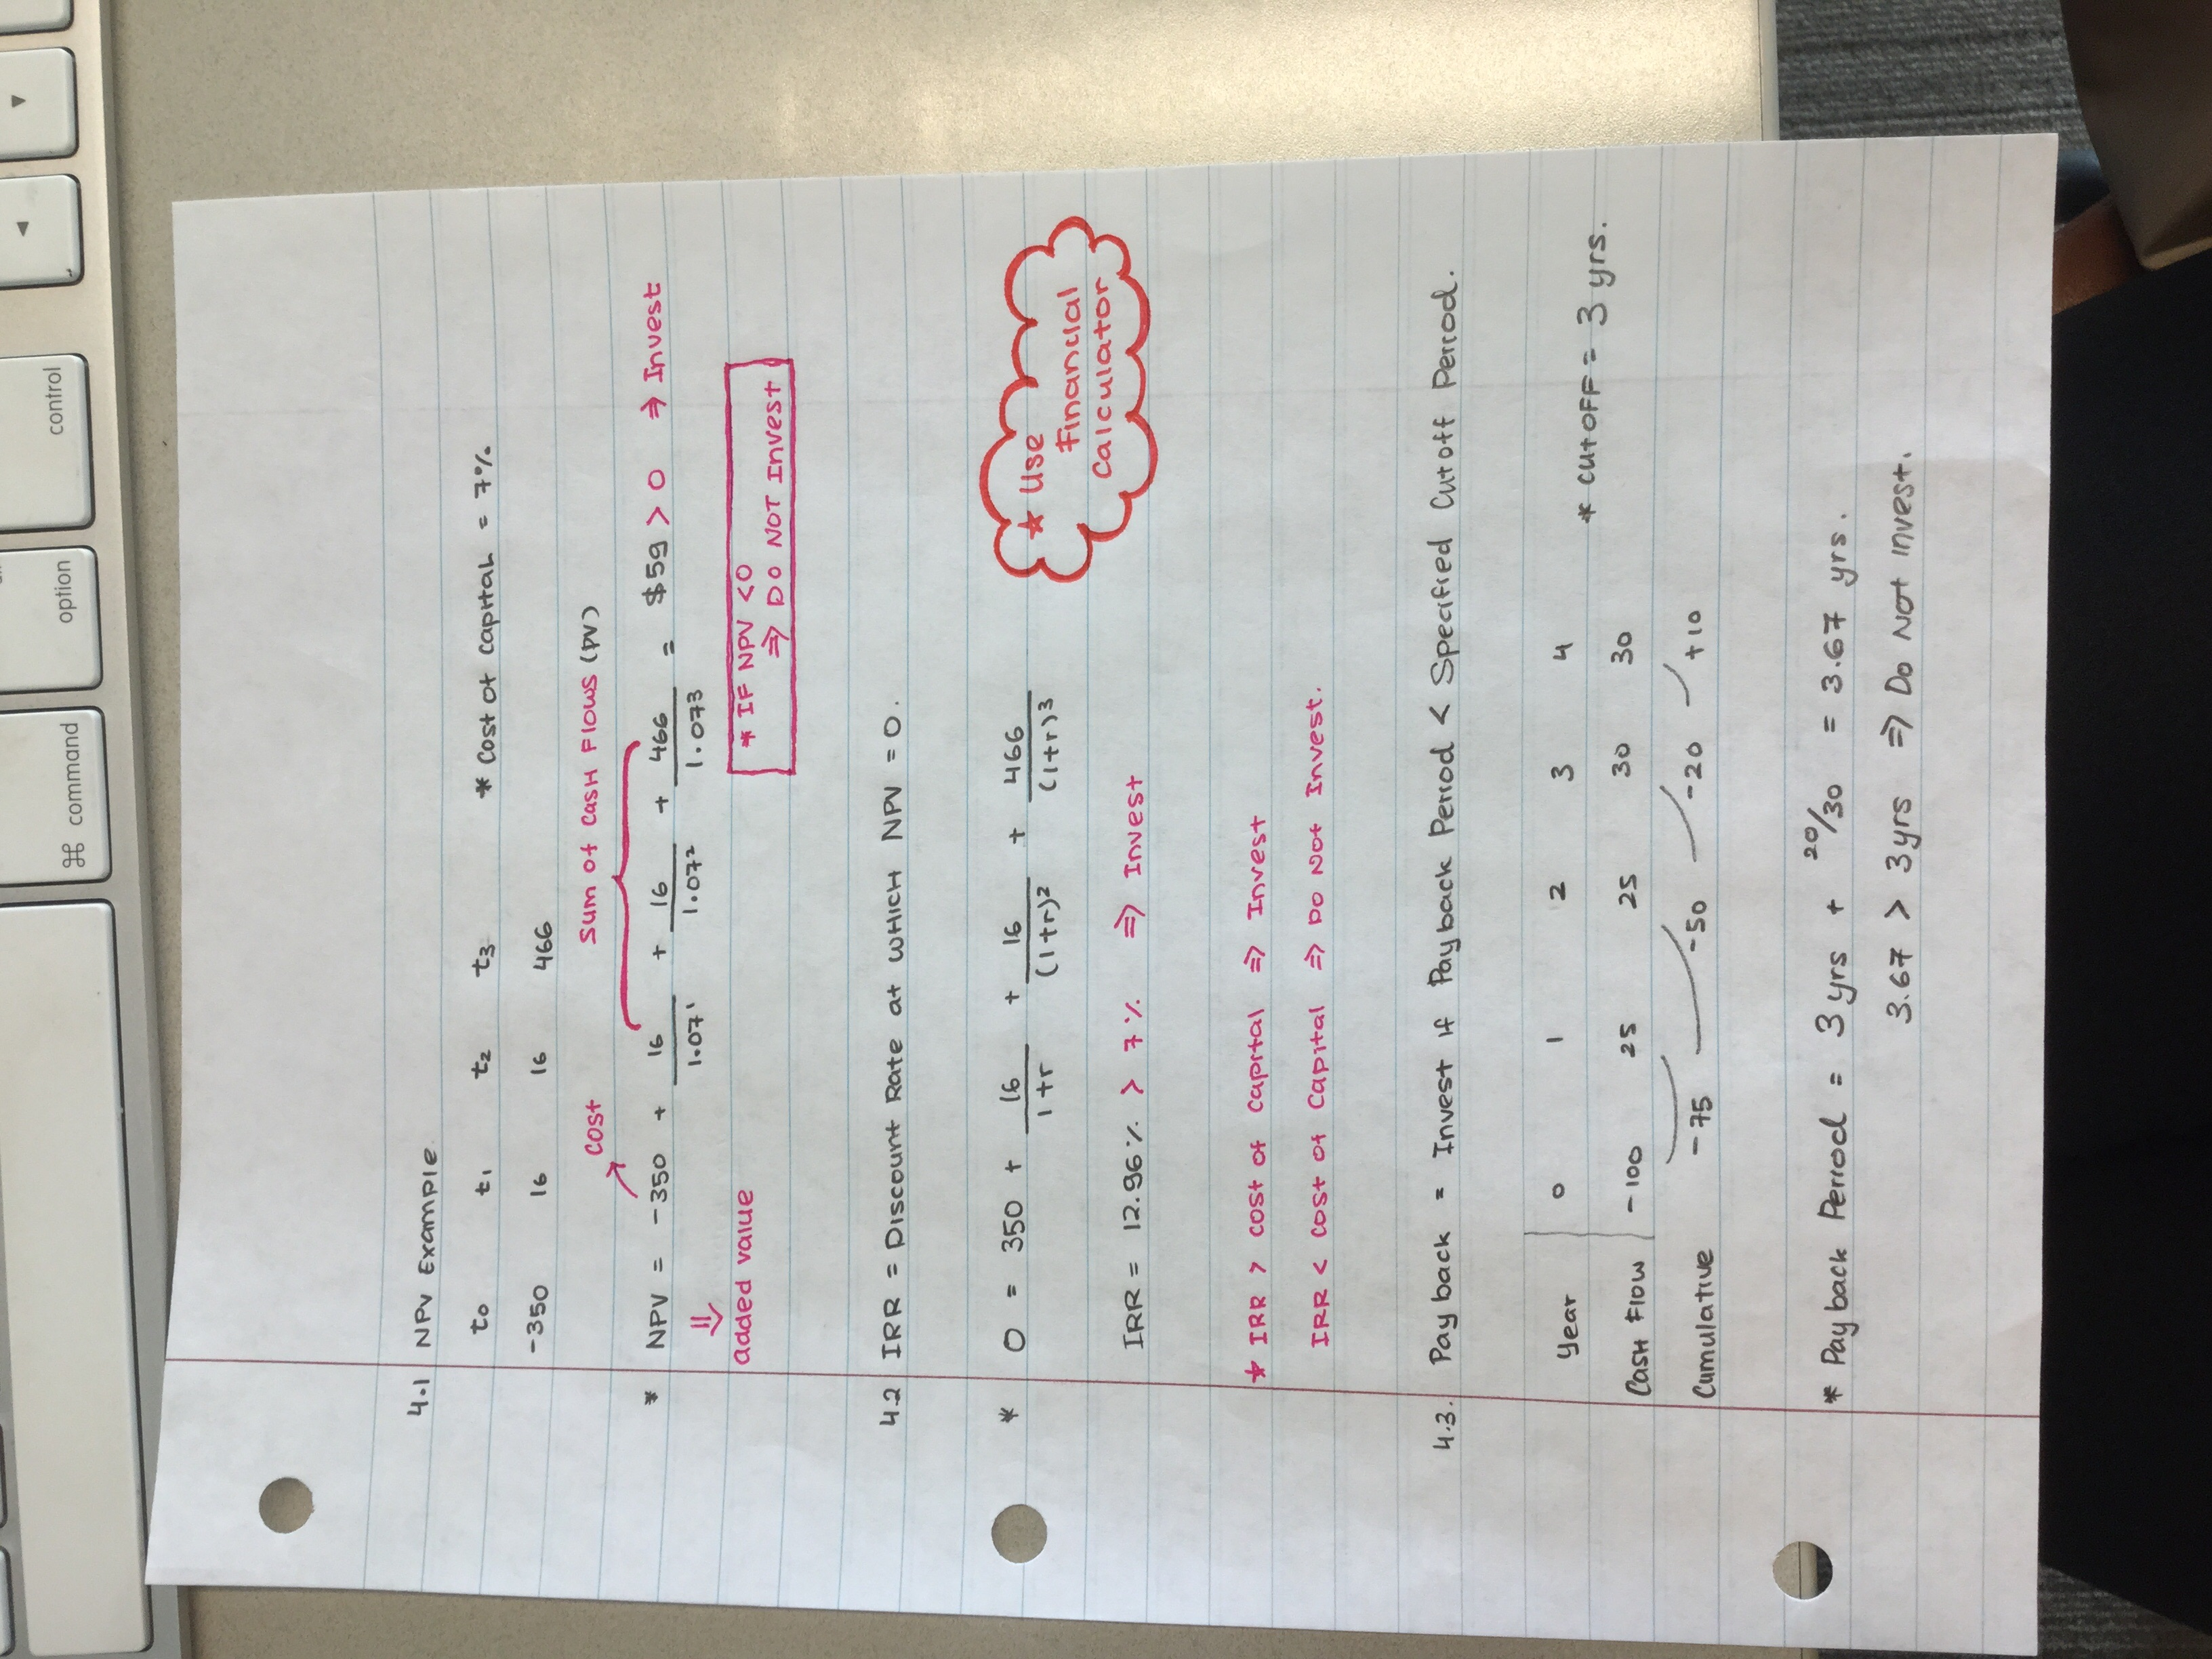 4.1 NPV Example
t0 t1 t2 t3 * Cost of capital = 7%
-350 16 16 466
cost Sum of Cash Flows (PV)
* NPV = -350 + 16/1.07¹ + 16/1.07² + 466/1.07³ = $59 > 0 ⇒ Invest
⇓
added value
* IF NPV <0
⇒ DO NOT Invest
4.2 IRR = Discount Rate at WHICH NPV = 0.
* 0 = 350 + 16/1+r + 16/(1+r)² + 466/(1+r)³
★ Use
Financial
Calculator
IRR = 12.96% > 7% ⇒ Invest
★ IRR > cost of capital ⇒ Invest
IRR < cost of capital ⇒ Do Not Invest.
4.3. Payback = Invest if Payback Period < Specified Cutoff Period.
Year 0 1 2 3 4
Cash Flow -100 25 25 30 30 * CutOFF = 3 yrs.
Cumulative -75 -50 -20 +10
* Payback Period = 3 yrs + 20/30 = 3.67 yrs.
3.67 > 3 yrs ⇒ Do Not Invest.
control
option
⌘ command